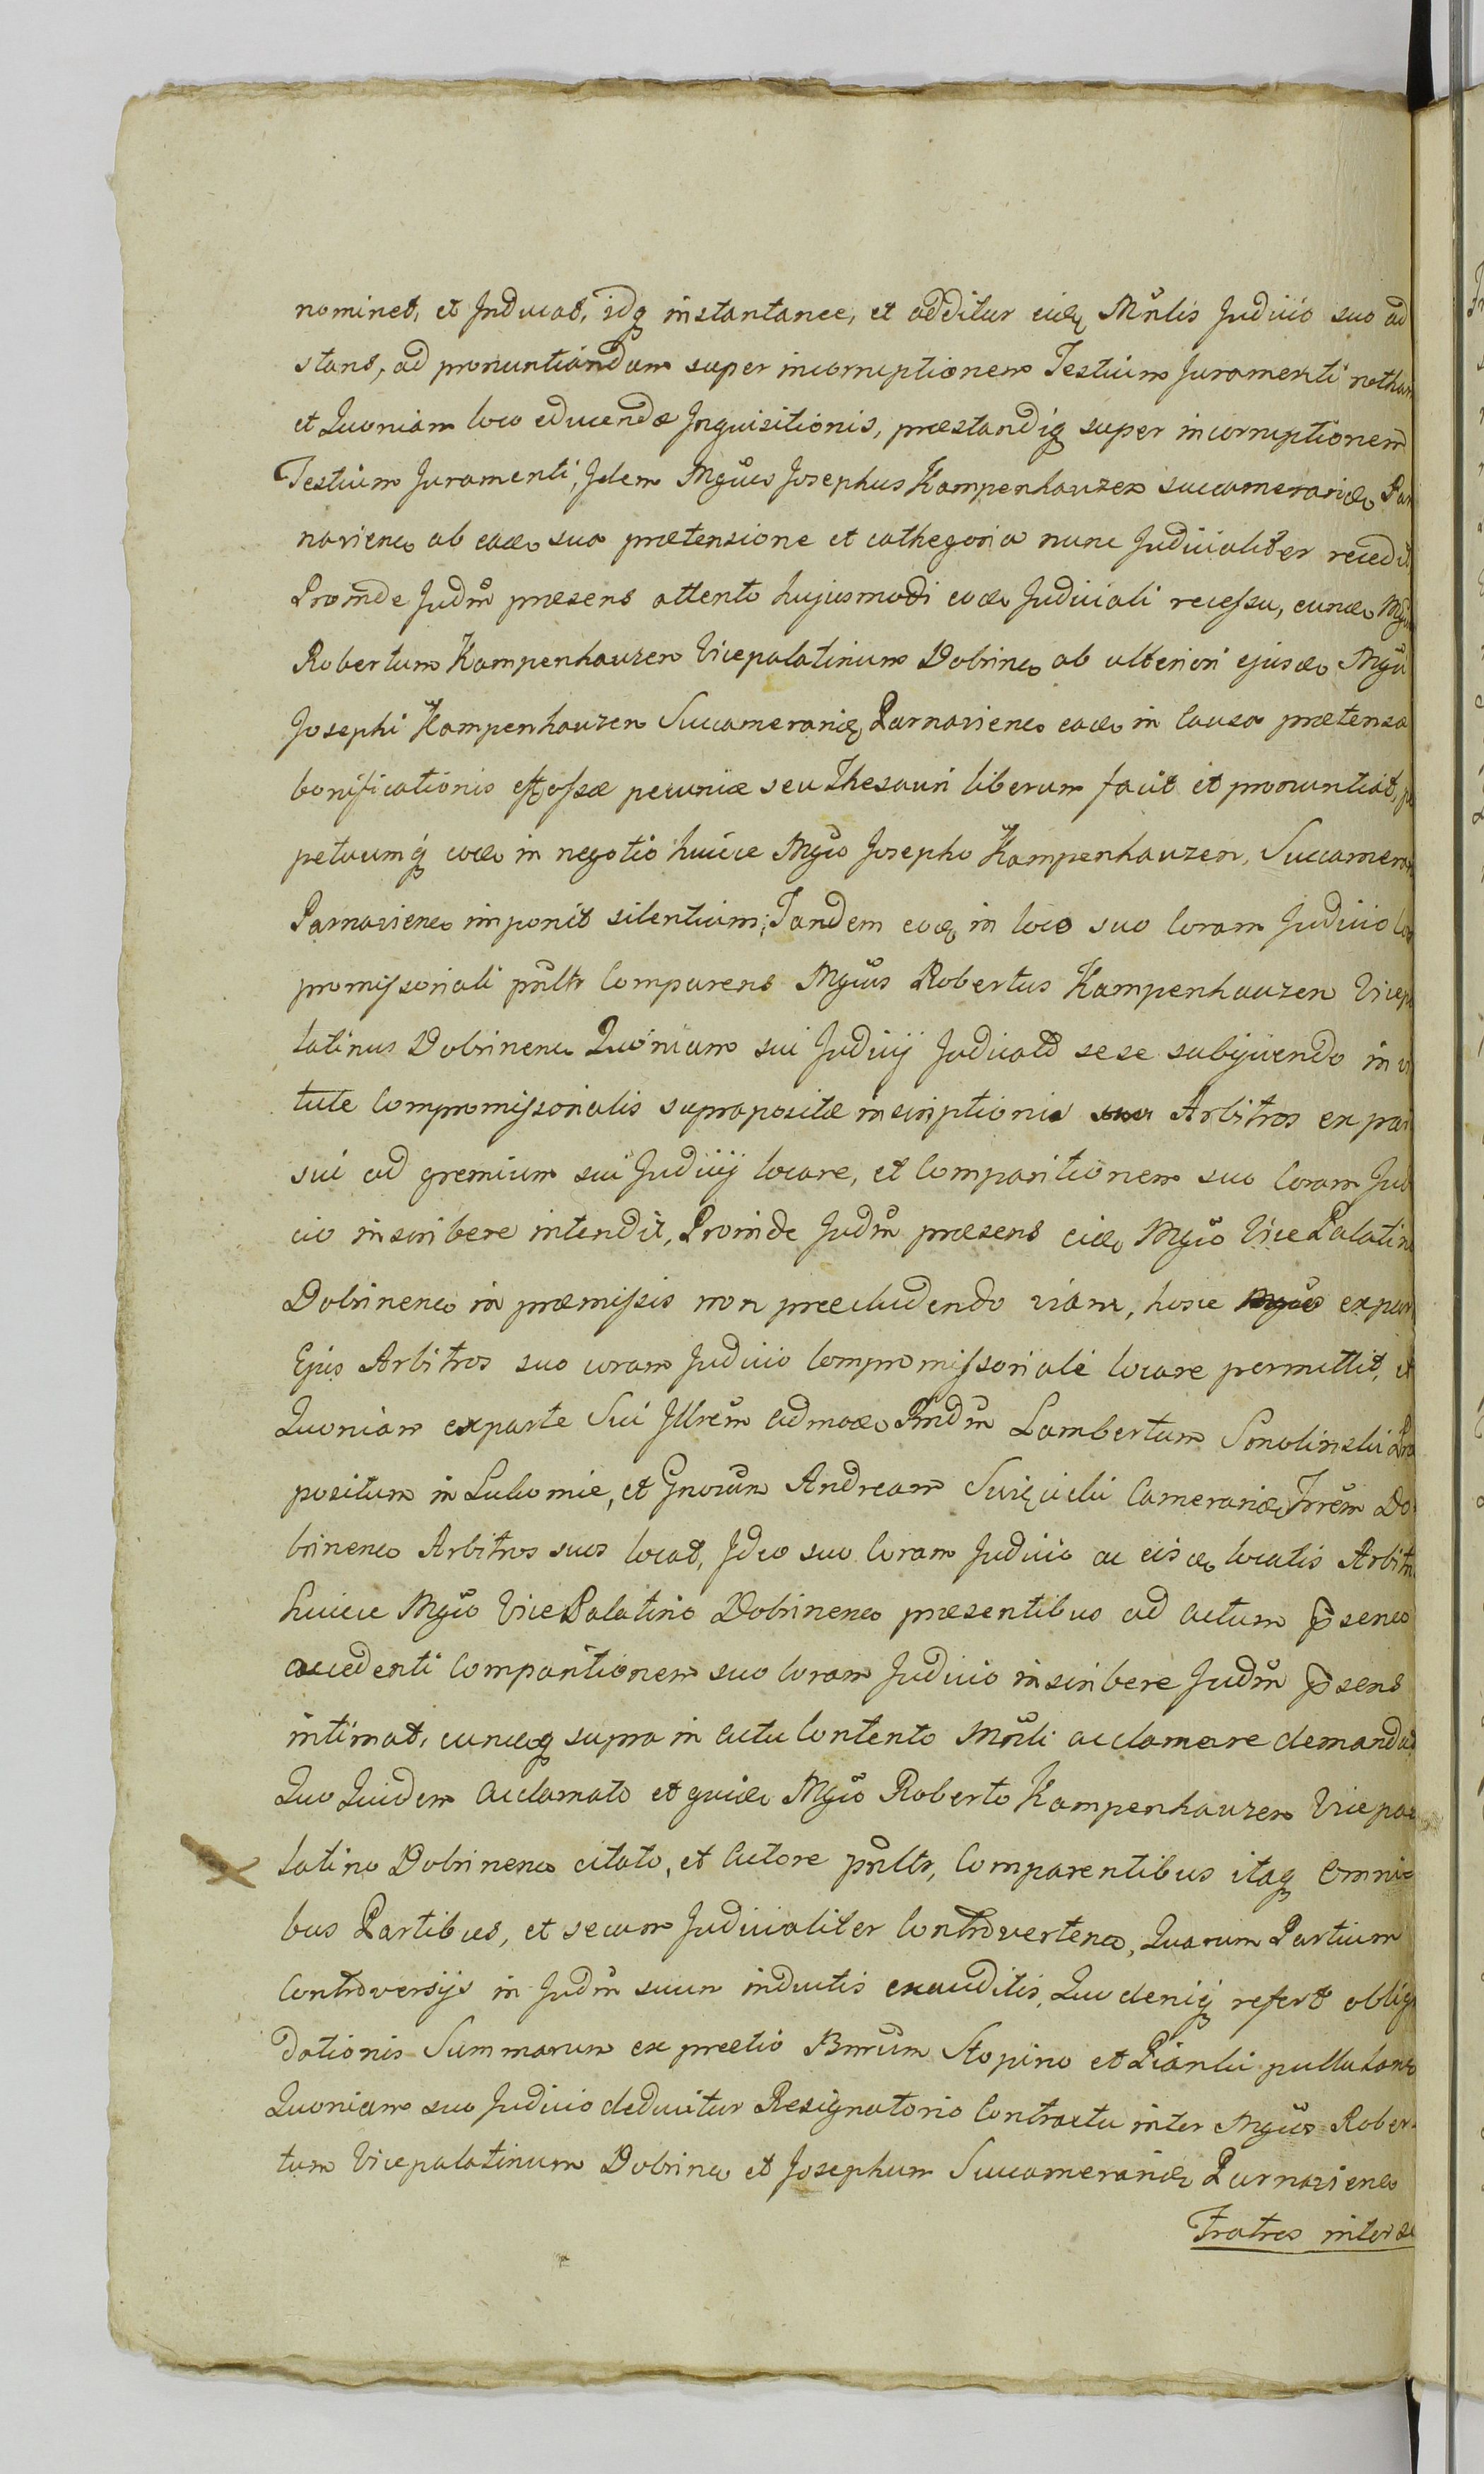 nominet, et Inducat, idq instantanee, et additur eidq Mnlis Judicio suo ad
stans, ad pronuntiandum super incorruptionem Testium Juramenti rotham
et Quoniam loco educendæ Inquisitionis, præstandiq super incorruptionem
Testium Juramenti, Idem Mgcus Josephus Kampenhauzen succamerarius Par
naviens ab eadem sua prætensione et cathegoria nunc Judicialiter recedit
Proinde Judm præsens attento hujusmodi eodem Judiciali recessu, eundem Mgcum
Robertum Kampenhauzen Vicepalatinum Dobrinen ab ulteriori ejusdem Mgci
Josephi Kampenhauzen Succamerarij Parnaviens eadem in causa prætensa
bonificationis effossæ pecuniæ seu Thesauri liberum facit et pronuntiat,
petuumq eodem in negotio huicce Mgco Josepho Kampenhauzen, Succamerar
Parnaviens imponit silentium; Tandem eodem in loco suo Coram Judicio Com
promissoriali pnltr Comparens Mgcus Robertus Kampenhauzen Vicepa
latinus Dobrinens Quoniam sui Judicij Judicato sese subijciendo in vir
tute Compromissorialis suprapositæ inscriptionis Arbitros ex par
sui ad gremium sui Judicij locare, et Comparitionem suo Coram Judi
cio inscribere intendit, Proinde Judm præsens eidem Mgco Vice Palatino
Dobrinens in præmissis non præcludendo viam, hosce Mgcos ex parte
Ejus Arbitros suo coram Judicio Compromissoriali locare permittit, et
Quoniam ex parte Sui Illrem admodum Rndm Lambertum Smolinski Præ
positum in Lubomie, et Gnosum Andream Swięcicki Camerarium Trrem Do
brinens Arbitros suos locat, Ideo suo Coram Judicio ac eisdem locatis Arbitris
huicce Mgco Vice Palatino Dobrinens præsentibus ad actum psens
accedenti Comparitionem suo Coram Judicio inscribere Judm psens
intimat, eundemq supra in actu Contento Mnli acclamare demandat
Quo Quidem acclamato et quidem Mgco Roberto Kampenhauzen Vicepa
latino Dobrinens citato, et Actore pnltr, Comparentibus itaq Omni-
bus Partibus, et secum Judicialiter Controvertens, Quarum Partium
Controversijs in Judm suum inductis exauditis, Quo deniq refert obliq
dationis Summarum ex prætio Bnrum Stopino et Pianki pullulans
Quoniam suo Judicio deducitur Resignatorio Contractu inter Mgcos Rober-
tum Vicepalatinum Dobrinens et Josephum Succamerarium Parnaviens
Fratres inter se